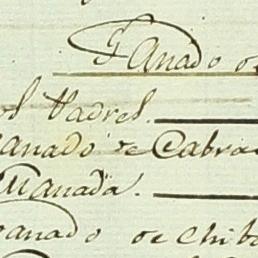 Ganado de
os Padres.
anado de Cabra
Manada.
anado de Chib